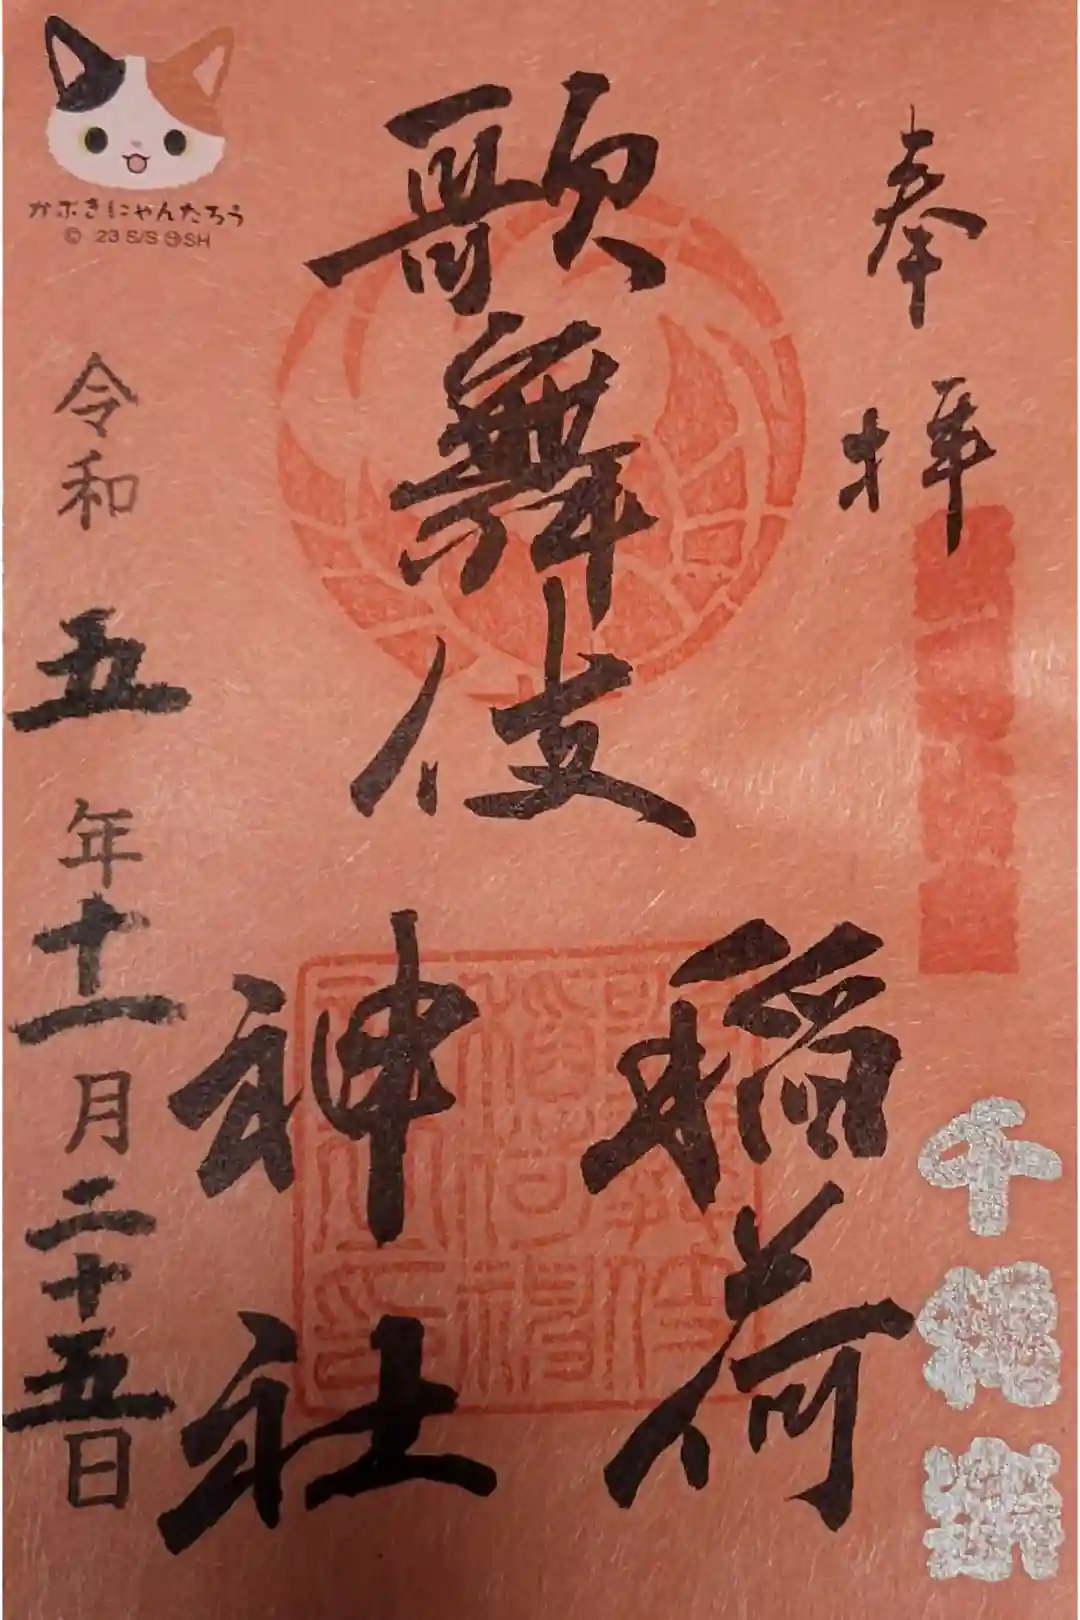 奉拝
千穐樂
歌舞伎
稲荷
神社
かぶきにゃんたろう
© '23 S/S Ⓢ SH
令和五年十一月二十五日